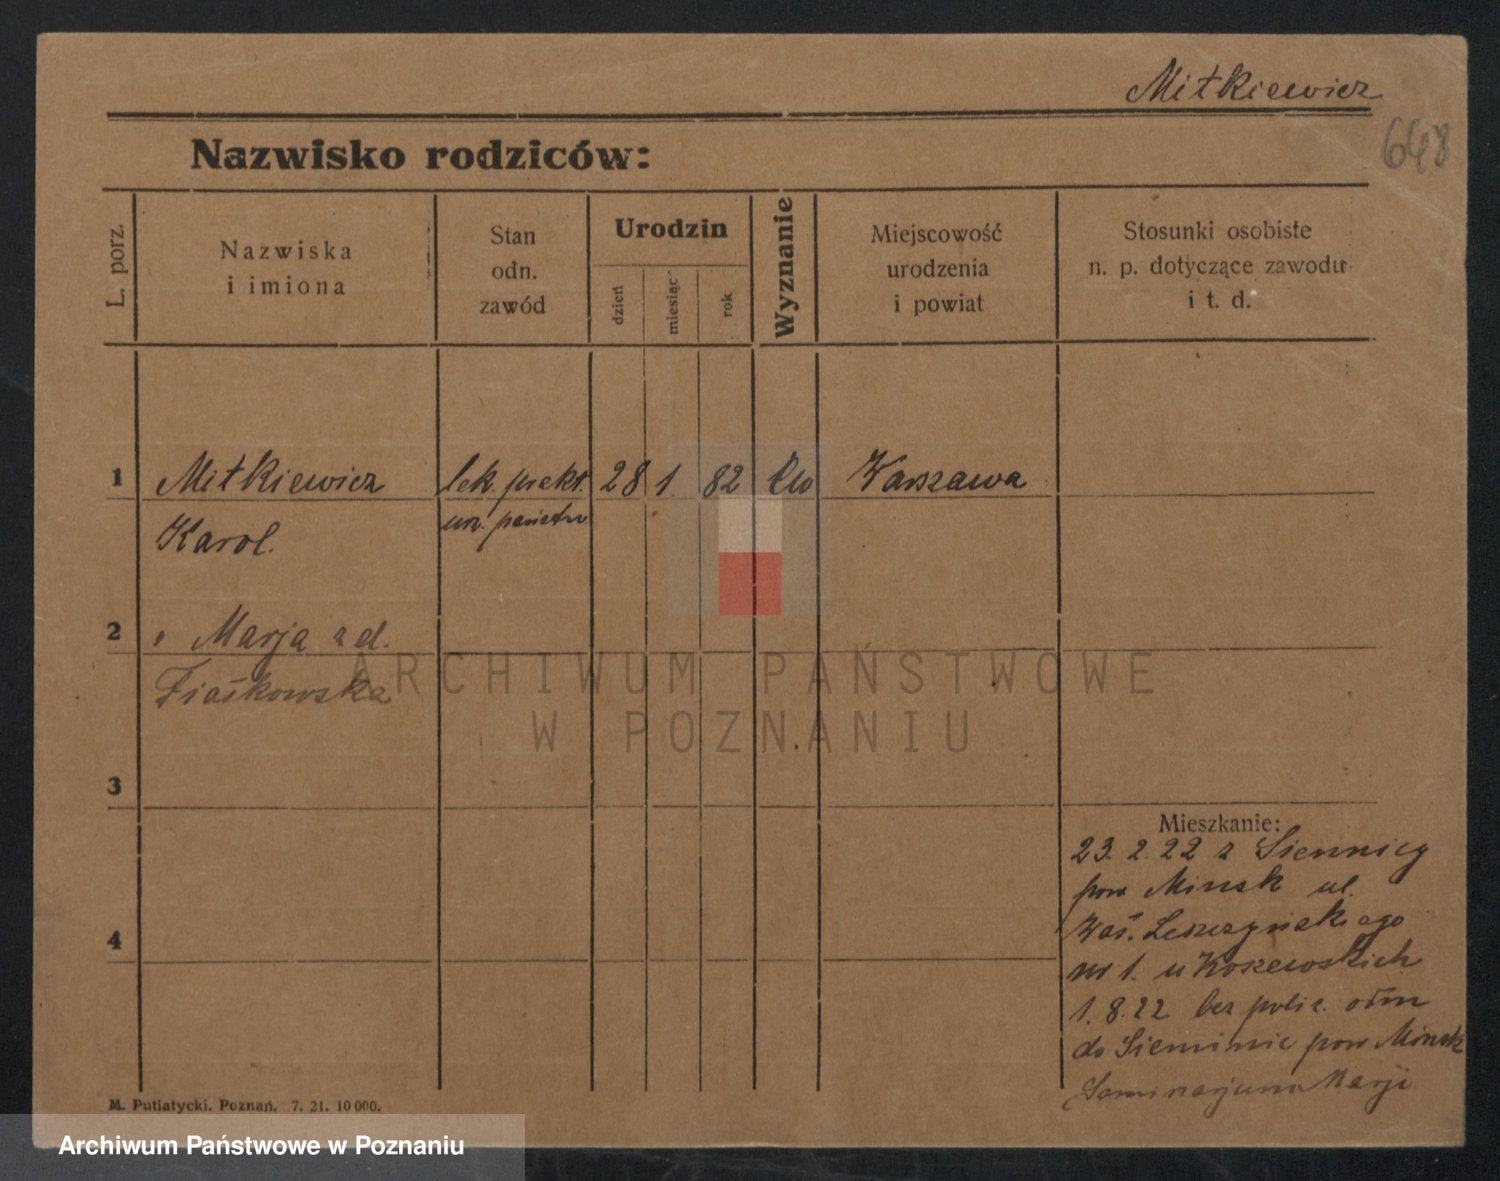 Mitkiewicz
648
Nazwisko rodziców:
L. porz.
Nazwiska
i imiona
Stan
odn.
zawód
Urodzin
dzień
miesiąc
rok
Wyznanie
Miejscowość
urodzenia
i powiat
Stosunki osobiste
n. p. dotyczące zawodu
i t. d.
1 Mitkiewicz lek. prakt. 28 1. 82 Warszawa
Karol.
2 " Marja z d.
3
4
Mieszkanie:
23. 2. 22 z Siennicy
pow Minsk ul.
Leszczyńskiego
nr 1. u Koszewskich
1. 8. 22 bez polic. odm
do pow Minsk
Seminarjum Marji
M. Putiatycki. Poznań. 7. 21. 10 000.
ARCHIWUM PAŃSTWOWE
W POZNANIU
Archiwum Państwowe w Poznaniu